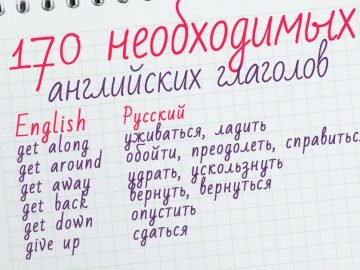 170 необходимых
английских глаголов
English Русский
get along уживаться, ладить
get around обойти, преодолеть, справиться
get away удрать, ускользнуть
get back вернуть, вернуться
get down опустить
give up сдаться